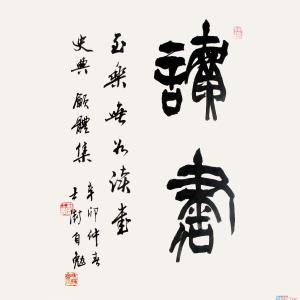 讀書
至樂無如读書
史典 願體集
辛卯仲春
士澍自勉